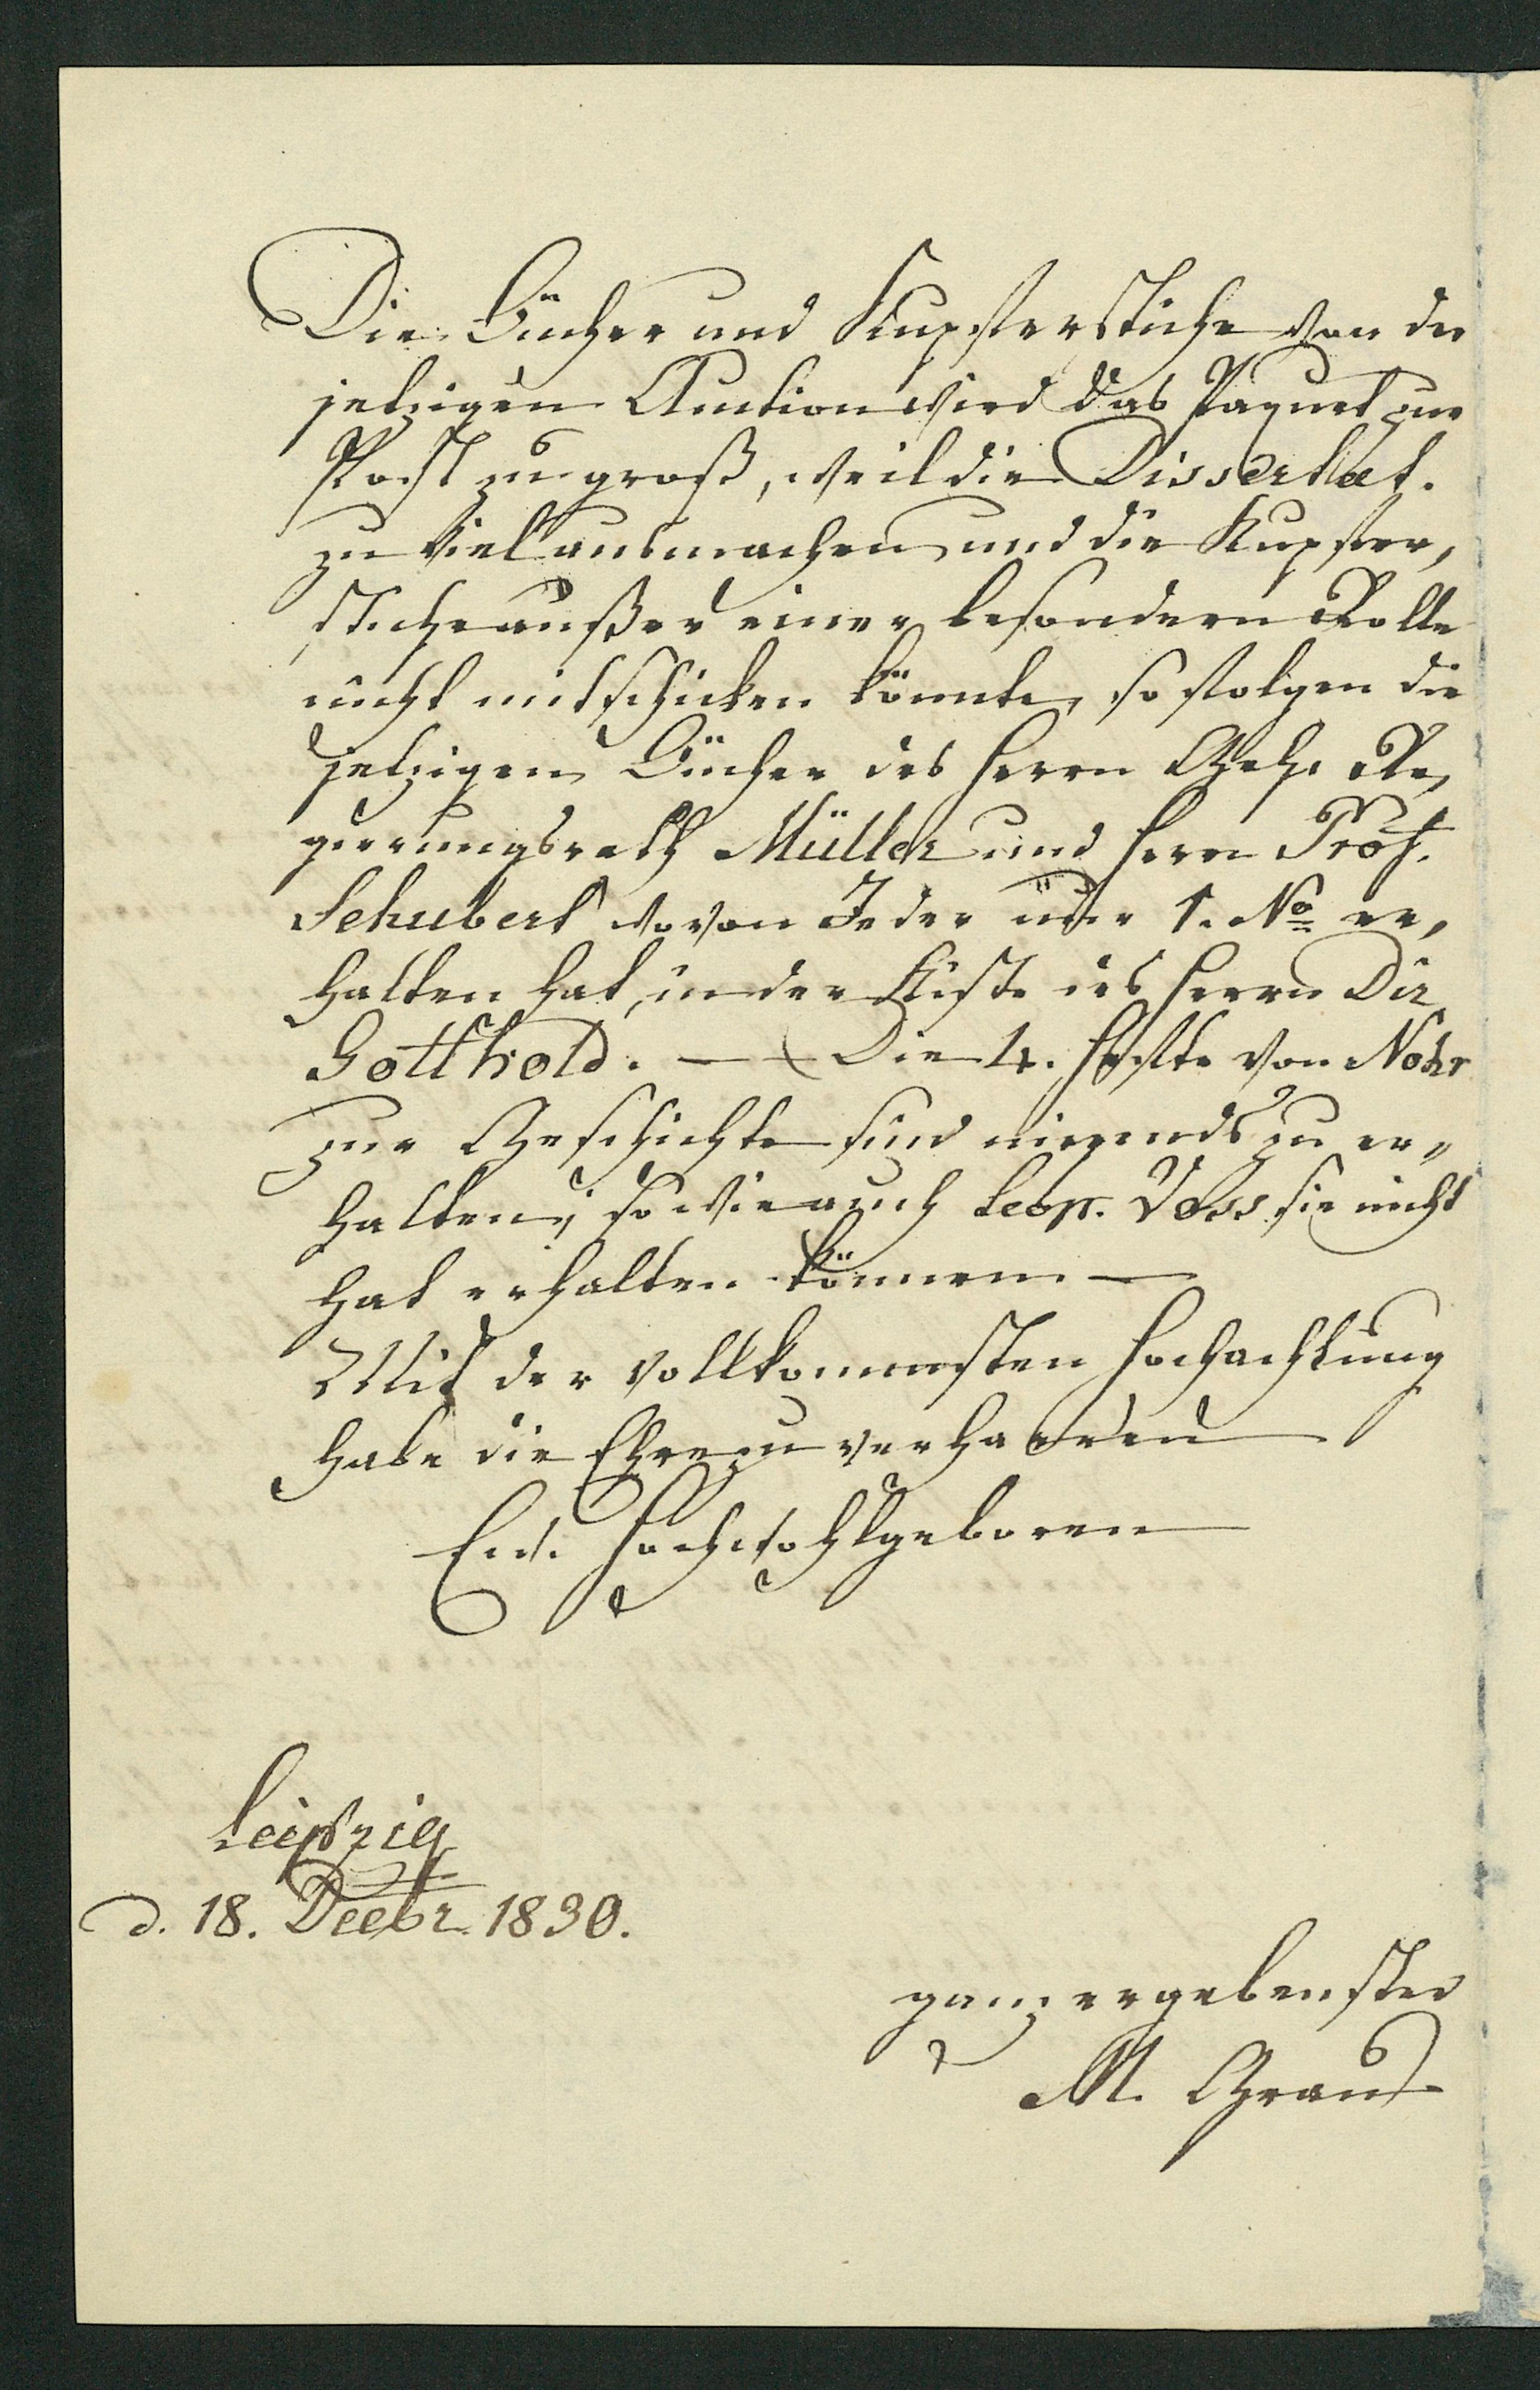 Die Bücher und Kupferstiche von der
jetzigen Auction wird das Paquet zur
Post zu groß, weil die Dissertat.
zu viel ausmachen und die Kupfer,
stiche außer einer besondern Rolle
nicht mitschicken könnte, so folgen die
jetzigen Bücher des Herrn Geh. Re,
gierungsrath Müller und Herrn Prof.
Schubert wovon Jeder nur 1. No er,
halten hat, in der Kiste des Herrn Dir
Gotthold. — Die 4. Hefte von Nohr
zur Geschichte sind nirgends zu er„
halten, so wie auch Leop. Voss sie nicht
hat erhalten können. —
Mit der vollkommensten Hochachtung
habe die Ehre zu verharren
Ew. Hochwohlgeboren
Leipzig
d. 18. Decbr. 1830.
ganz ergebenster
M. Grau